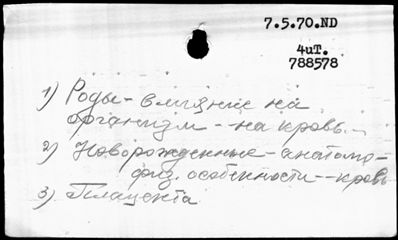 7.5.70.ND
4uT.
788578
1) Роды - влияние на
организм - на кровь.
2) Новорожденные - анатомо-
физ. особенности - кровь
3) Плацента